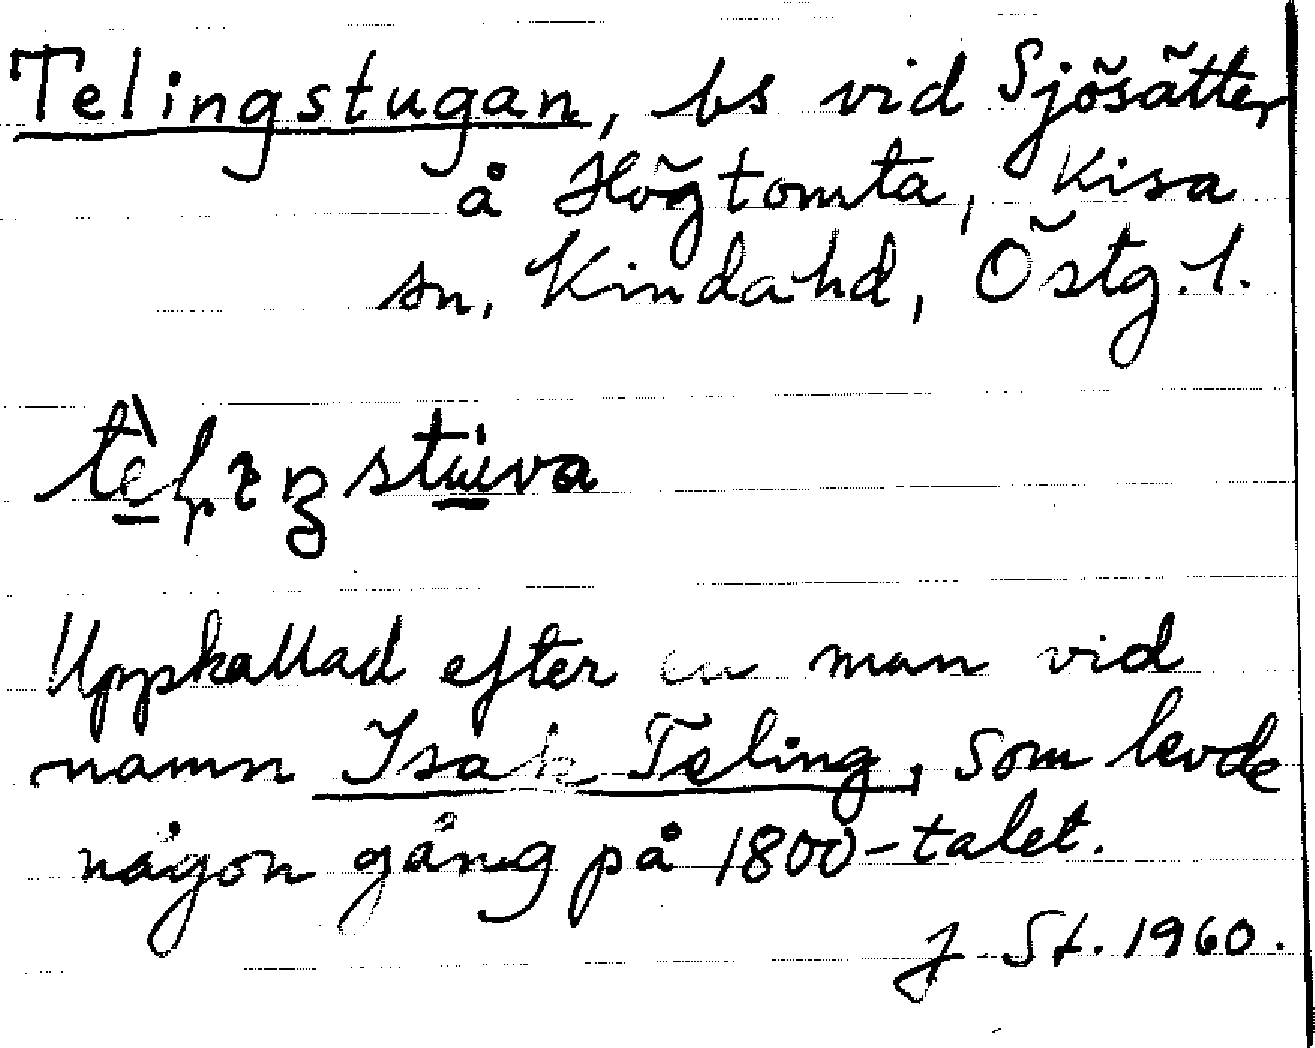 Telingstugan, bs vid Sjösätter
å Högtomta, Kisa
sn, Kinda hd, Östg.l.
Uppkallad efter en man vid
namn Isak Teling, som levde
någon gång på 1800-talet.
J St. 1960.